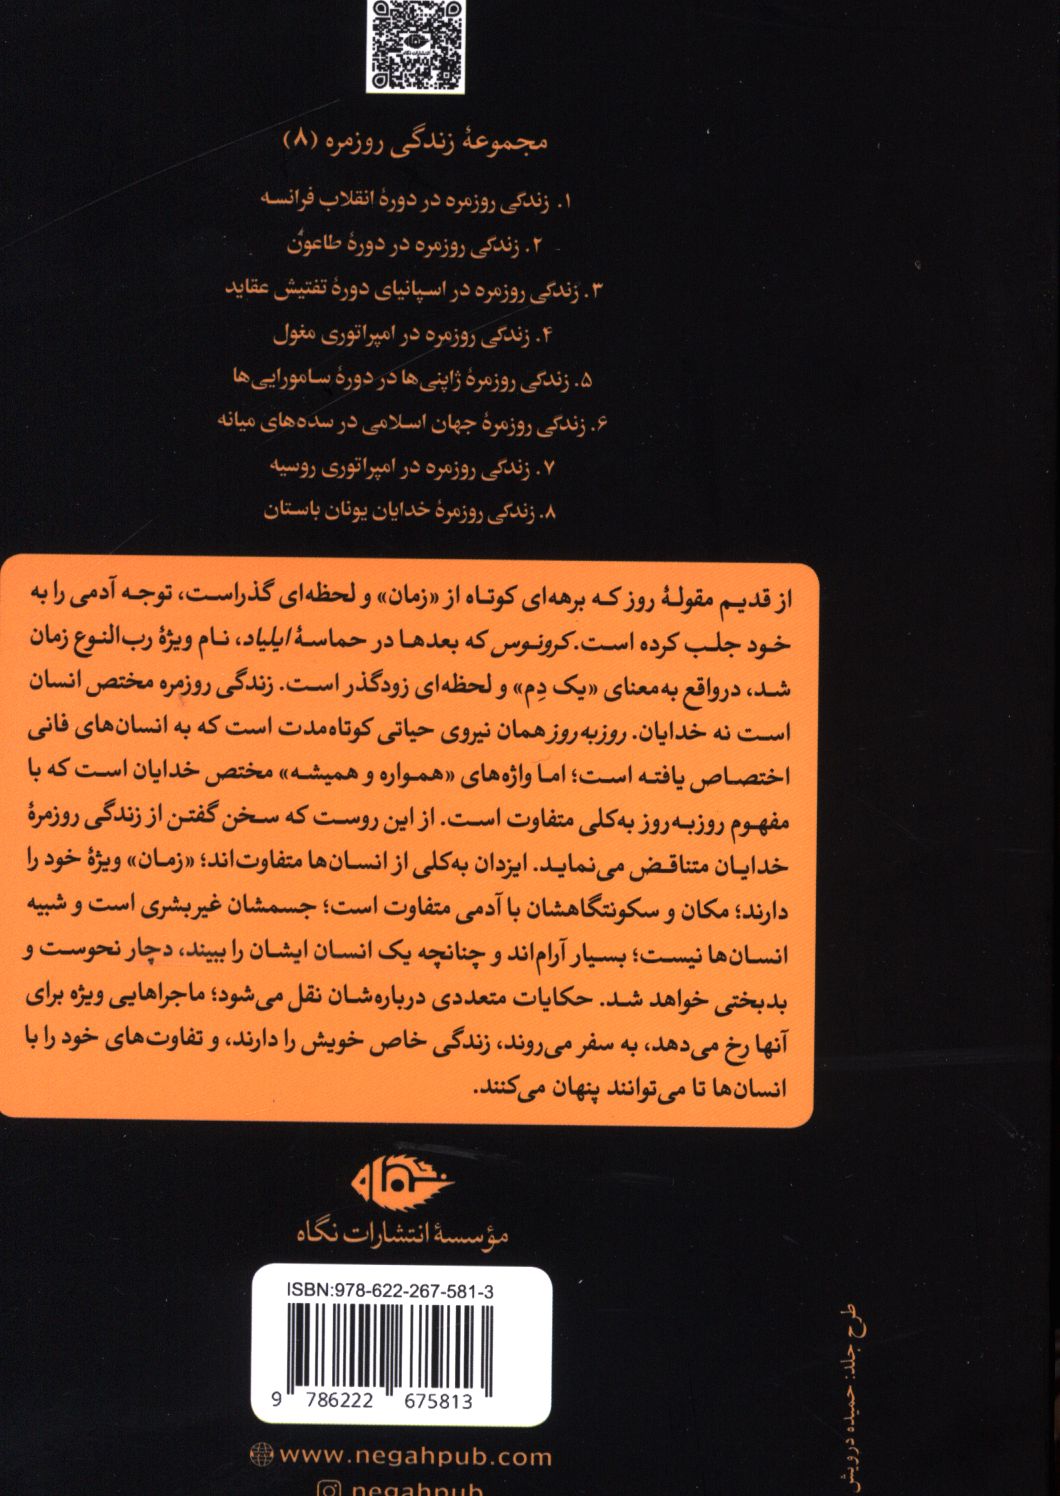 مجموعهٔ زندگی روزمره (۸)
۱. زندگی روزمره در دورهٔ انقلاب فرانسه
۲. زندگی روزمره در دورهٔ طاعون
۳. زندگی روزمره در اسپانیای دورهٔ تفتیش عقاید
۴. زندگی روزمره در امپراتوری مغول
۵. زندگی روزمرهٔ ژاپنی‌ها در دورهٔ سامورایی‌ها
۶. زندگی روزمرهٔ جهان اسلامی در سده‌های میانه
۷. زندگی روزمره در امپراتوری روسیه
۸. زندگی روزمرهٔ خدایان یونان باستان
از قدیم مقولهٔ روز که برهه‌ای کوتاه از «زمان» و لحظه‌ای گذراست، توجه آدمی را به
خود جلب کرده است. کرونوس که بعدها در حماسهٔ ایلیاد، نام ویژهٔ رب‌النوع زمان
شد، درواقع به‌معنای «یک دِم» و لحظه‌ای زودگذر است. زندگی روزمره مختص انسان
است نه خدایان. روزبه‌روز همان نیروی حیاتی کوتاه‌مدت است که به انسان‌های فانی
اختصاص یافته است؛ اما واژه‌های «همواره و همیشه» مختص خدایان است که با
مفهوم روزبه‌روز به‌کلی متفاوت است. از این روست که سخن گفتن از زندگی روزمرهٔ
خدایان متناقض می‌نماید. ایزدان به‌کلی از انسان‌ها متفاوت‌اند؛ «زمان» ویژهٔ خود را
دارند؛ مکان و سکونتگاهشان با آدمی متفاوت است؛ جسمشان غیربشری است و شبیه
انسان‌ها نیست؛ بسیار آرام‌اند و چنانچه یک انسان ایشان را ببیند، دچار نحوست و
بدبختی خواهد شد. حکایات متعددی درباره‌شان نقل می‌شود؛ ماجراهایی ویژه برای
آنها رخ می‌دهد، به سفر می‌روند، زندگی خاص خویش را دارند، و تفاوت‌های خود را با
انسان‌ها تا می‌توانند پنهان می‌کنند.
مؤسسهٔ انتشارات نگاه
ISBN:978-622-267-581-3
9 786222 675813
www.negahpub.com
negahpub
طرح جلد: حمیده درویش